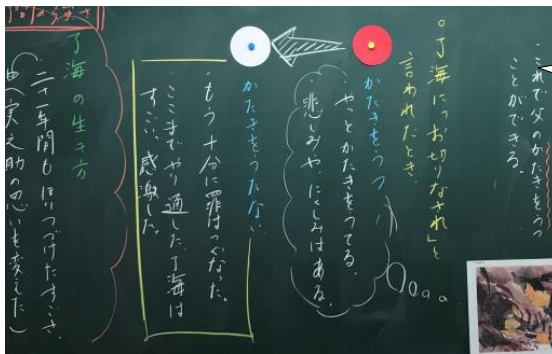 これで父のかたきをうつ
ことができる。
。了海に「お切りなされ」と
言われたとき、
かたきをうつ
やっとかたきをうてる。
悲しみや、にくしみはある。
かたきをうたない
・もう十分に罪はつぐなった。
・ここまでやり通した了海は
すごい。感激した。
了海の生き方
二十一年間もほりつづけたすごさ。
実之助の思いも変えた